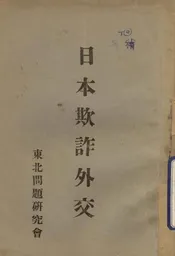 日本欺詐外交
東北問題研究會